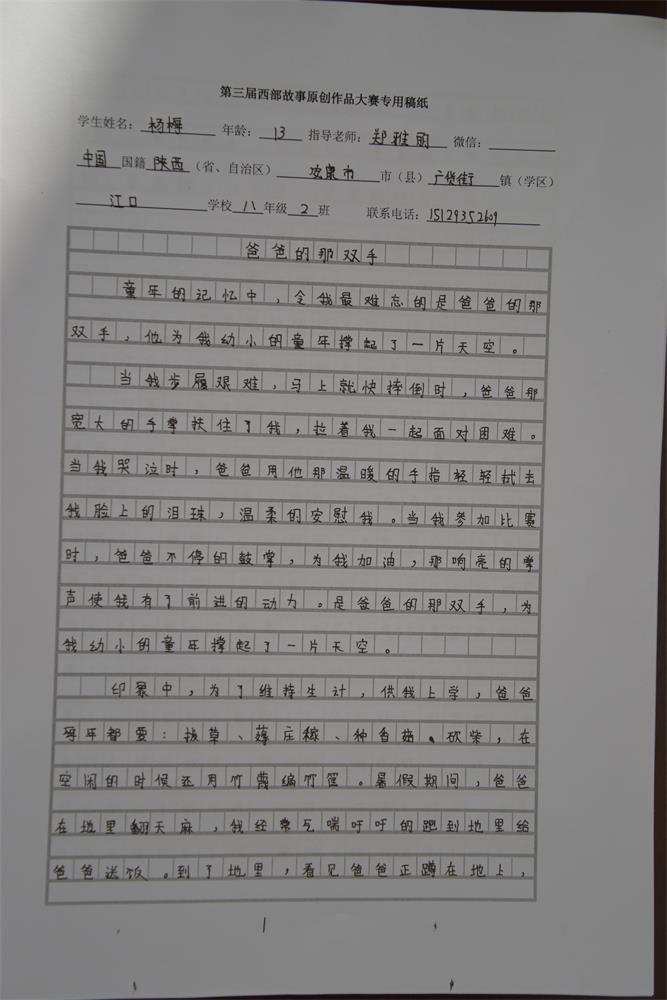 第三届西部故事原创作品大赛专用稿纸
学生姓名：杨梅 年龄：13 指导老师：郑雅丽 微信：
中国 国籍 陕西（省、自治区） 安康市 市（县）广货街 镇（学区）
江口 学校 八 年级 2 班 联系电话：15129352609
爸爸的那双手
童年的记忆中，令我最难忘的是爸爸的那
双手，他为我幼小的童年撑起了一片天空。
当我步履艰难，马上就快摔倒时，爸爸那
宽大的手掌扶住了我，拉着我一起面对困难。
当我哭泣时，爸爸用他那温暖的手指轻轻拭去
我脸上的泪珠，温柔的安慰我。当我参加比赛
时，爸爸不停的鼓掌，为我加油，那响亮的掌
声使我有了前进的动力。是爸爸的那双手，为
我幼小的童年撑起了一片天空。
印象中，为了维持生计，供我上学，爸爸
每年都要：拔草、薅庄稼、种香菇、砍柴，在
空闲的时候还用竹篾编竹筐。暑假期间，爸爸
在地里翻天麻，我经常气喘吁吁的跑到地里给
爸爸送饭。到了地里，看见爸爸正蹲在地上，
1